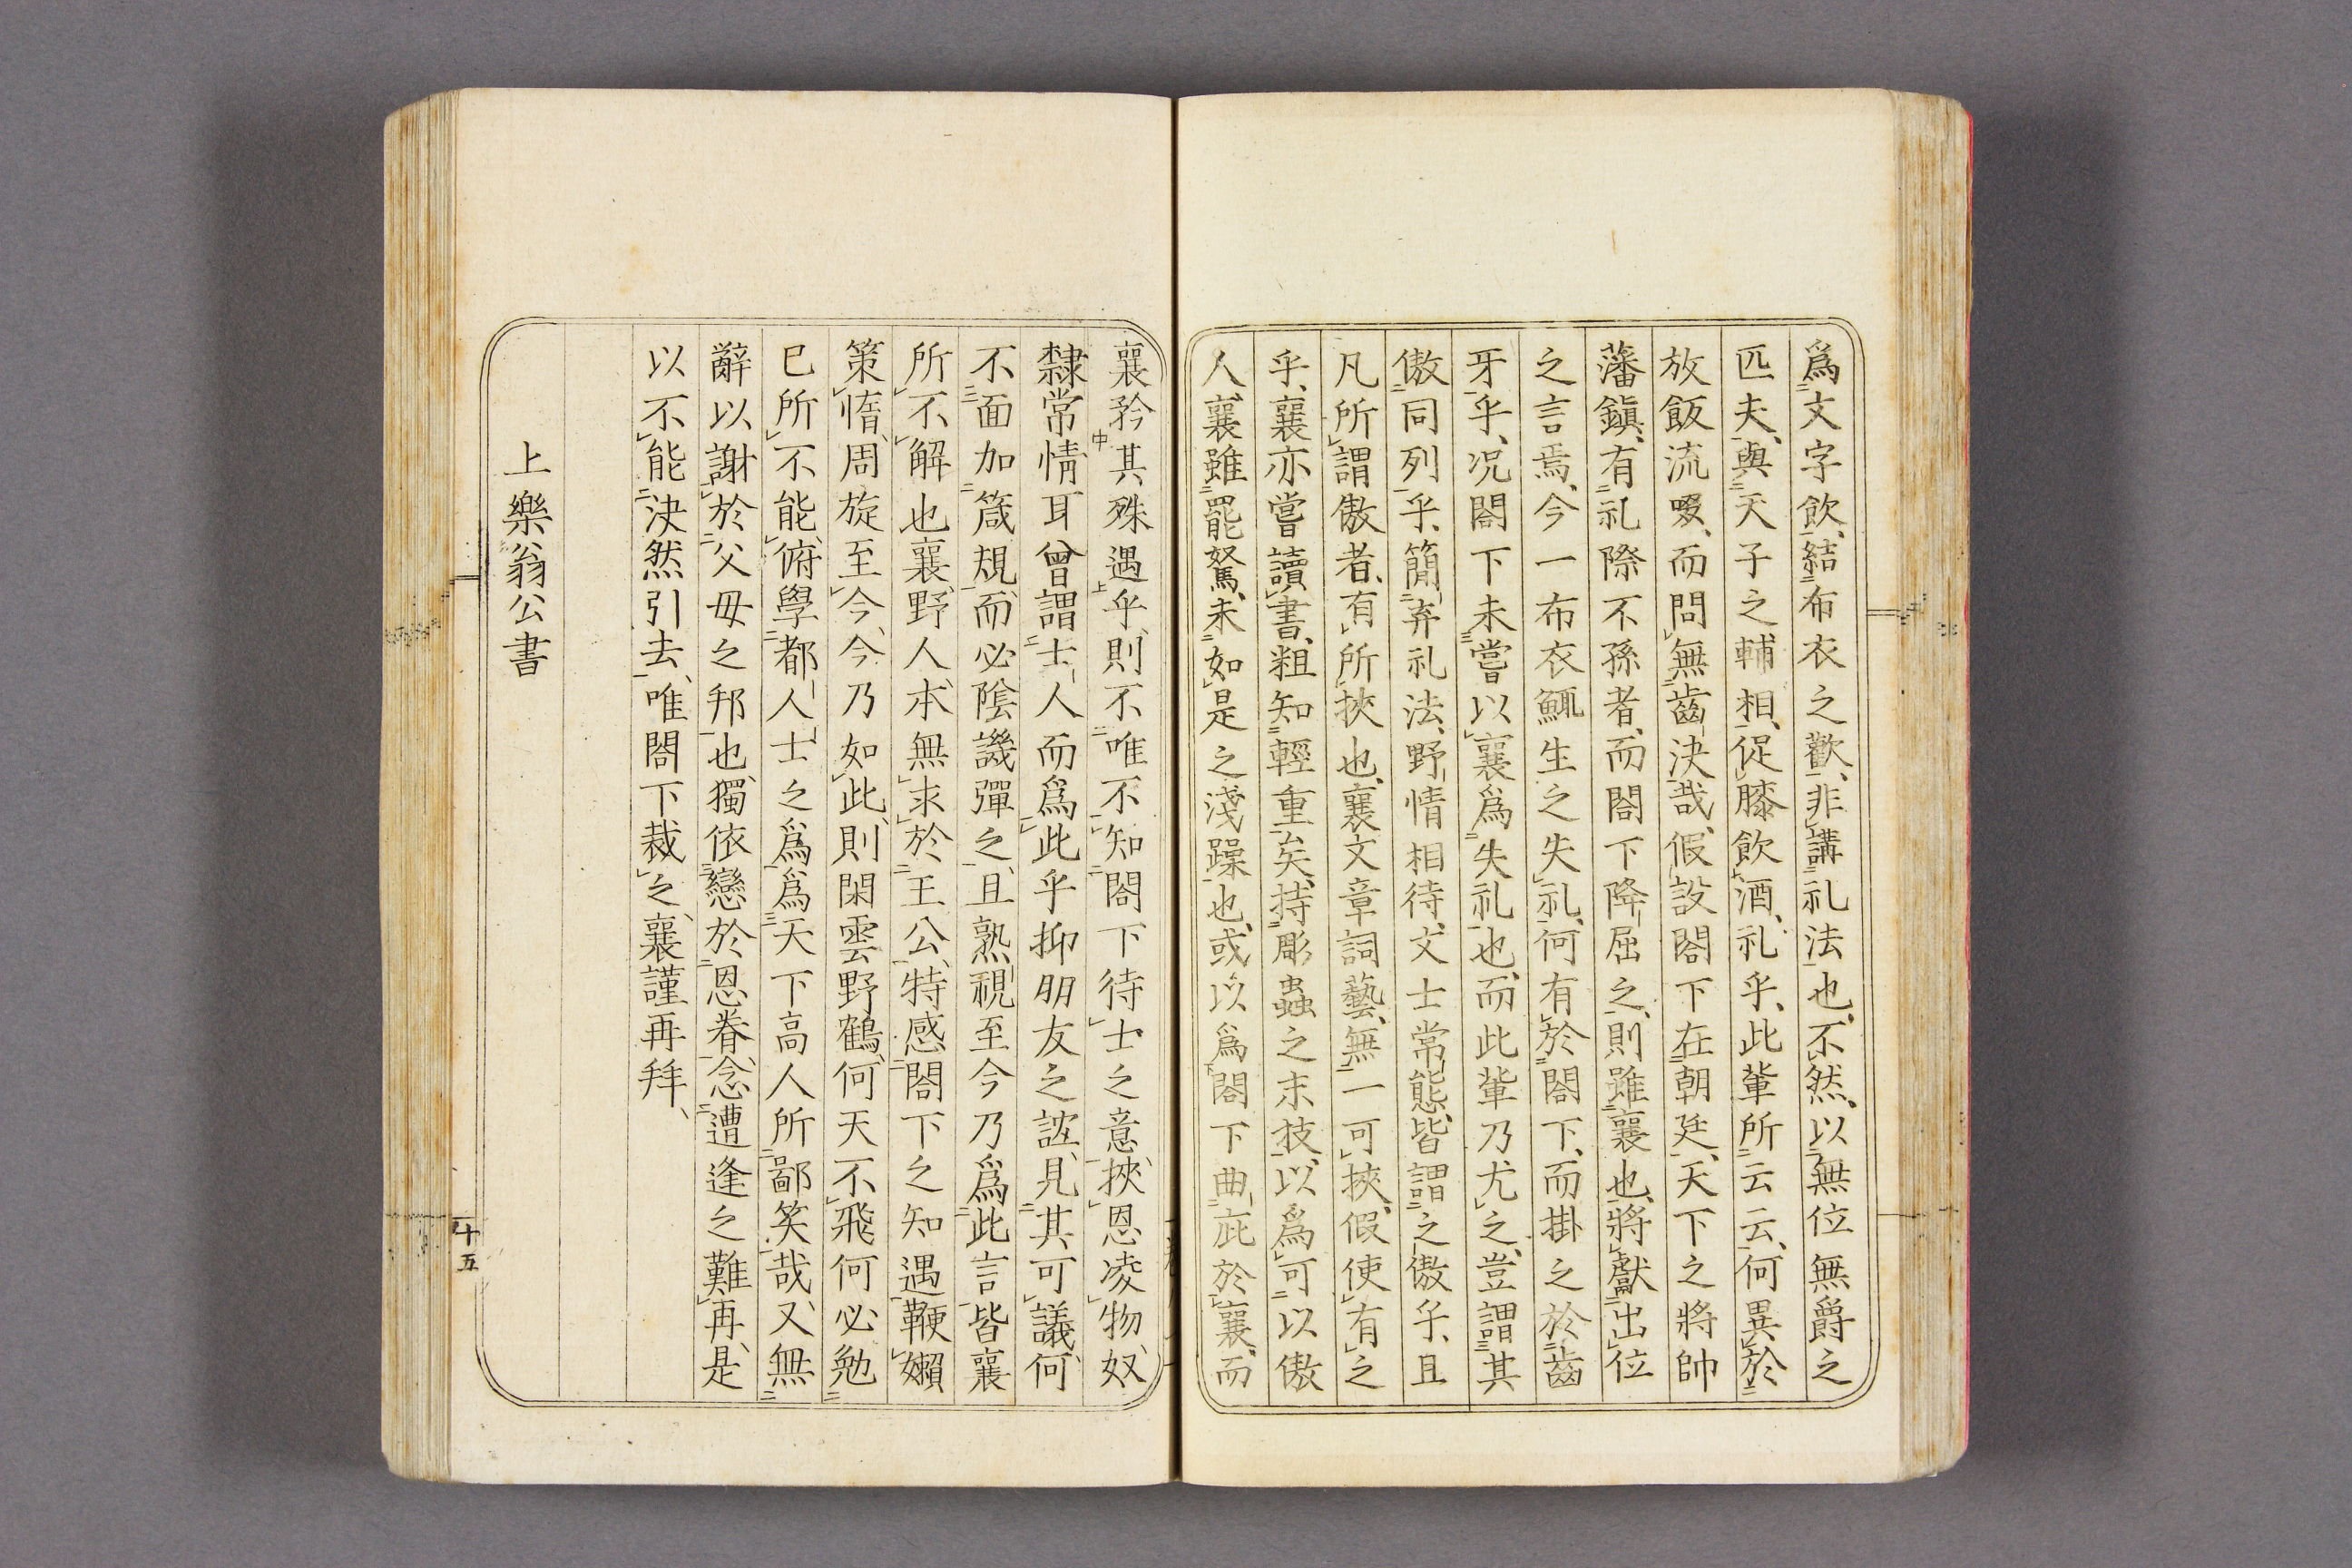 爲文字飲、結布衣之歡、非講礼法也、不然、以無位無爵之
匹夫、與天子之輔相、促膝飲酒、礼乎、此輩所云云、何異於
放飯流啜、而問無齒決哉、假設閤下在朝廷、天下之將帥
藩鎭、有礼際不孫者、而閤下降屈之、則雖襄也、將獻出位
之言焉、今一布衣鯫生之失礼、何有於閤下、而掛之於齒
牙乎、况閤下未嘗以襄爲失礼也、而此輩乃尤之、豈謂其
傲同列乎、簡弃礼法、野情相待、文士常態、皆謂之傲乎、且
凡所謂傲者、有所挾也、襄文章詞藝、無一可挾、假使有之
乎、襄亦嘗讀書、粗知輕重矣、持彫蟲之末技、以爲可以傲
人、襄雖罷駑、未如是之淺躁也、或以爲閤下曲庇於襄、而
襄矜其殊遇乎、則不唯不知閤下待士之意、挾恩凌物、奴
隸常情耳、曾謂士人而爲此乎、抑朋友之誼、見其可議、何
不面加箴規、而必陰譏彈之、且熟視至今、乃爲此言、皆襄
所不解也、襄野人、本無求於王公、特感閤下之知遇、鞭嬾
策惰、周旋至今、今乃如此、則閑雲野鶴、何天不飛、何必勉
已所不能、俯學都人士之爲、爲天下高人所鄙笑哉、又無
辭以謝於父母之邦也、獨依戀於恩眷、念遭逢之難再、是
以不能決然引去、唯閤下裁之、襄謹再拜、
上樂翁公書
十五